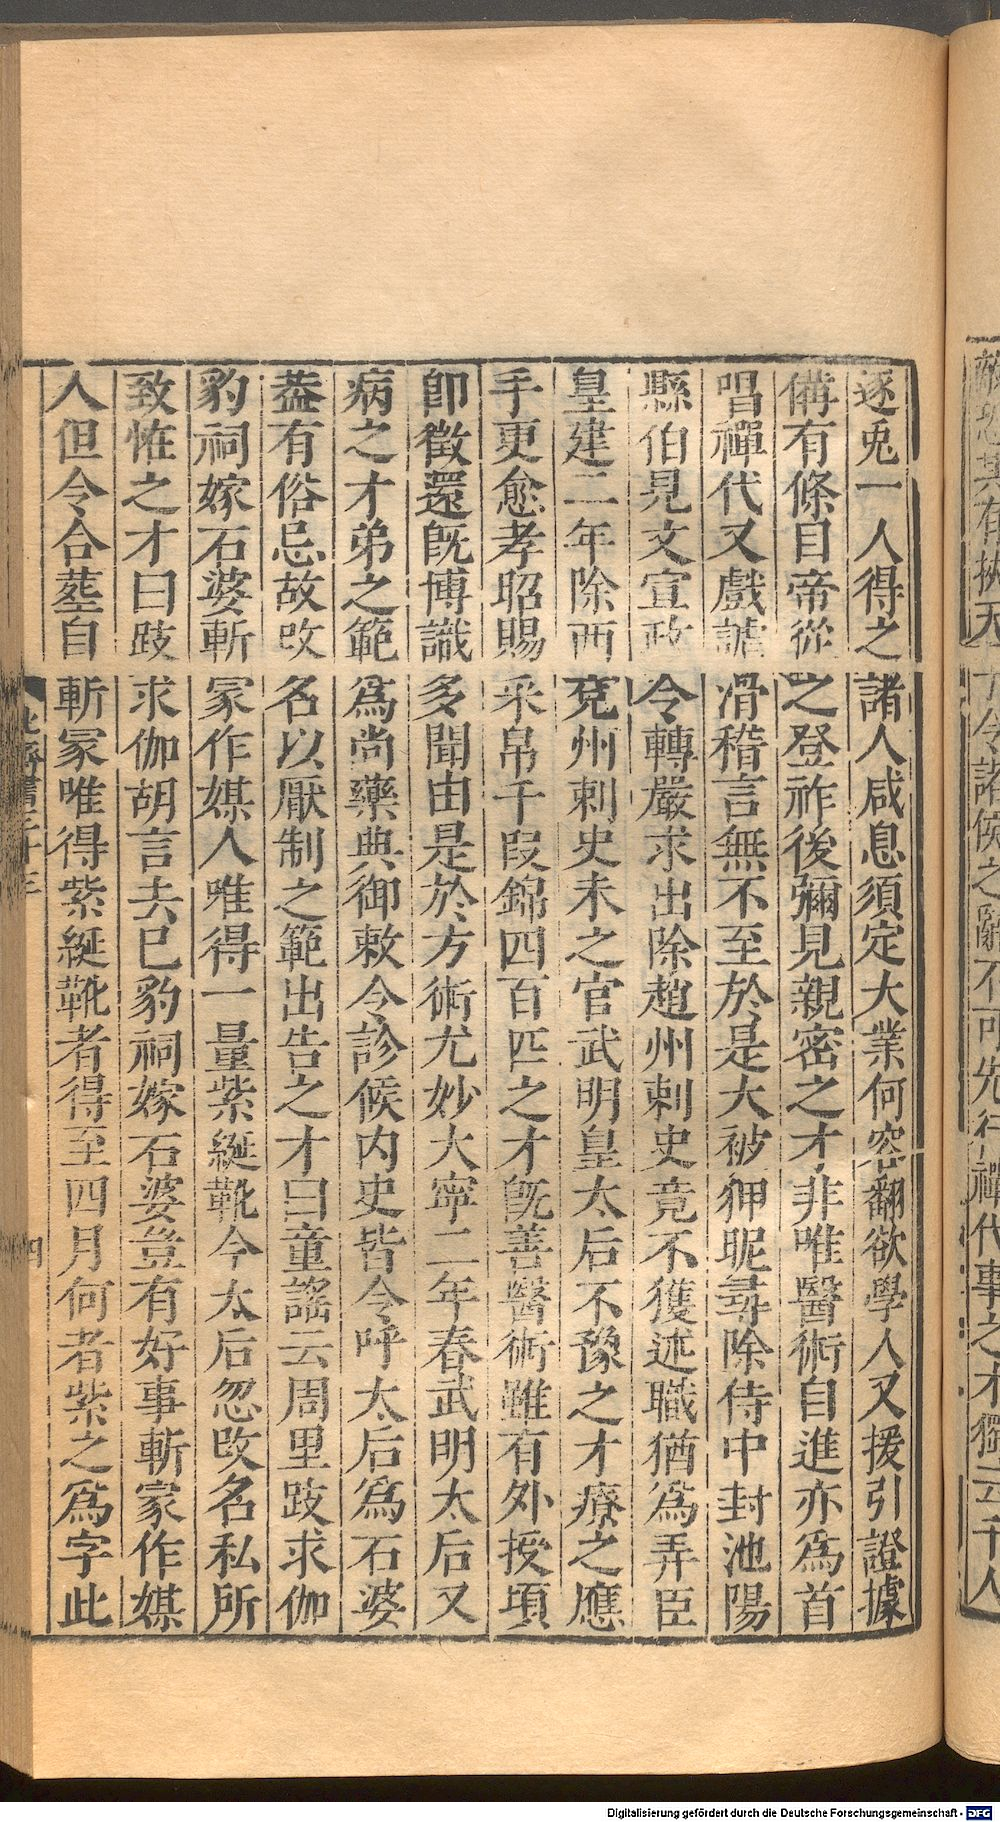 逐兎一人得之諸人咸息須定大業何容翻欲學人又援引證據
備有條目帝從之登祚後彌見親密之才非唯醫術自進亦爲首
唱禪代又戲謔滑稽言無不至於是大被狎昵尋除侍中封池陽
縣伯見文宣政令轉嚴求出除趙州刺史竟不獲述職猶爲弄臣
皇建二年除西兗州刺史未之官武明皇太后不豫之才療之應
手更愈孝昭賜采帛千段錦四百匹之才旣善醫術雖有外授頃
卽徵還旣博識多聞由是於方術尤妙大寧二年春武明太后又
病之才弟之範爲尚藥典御敕令診候内史皆令呼太后爲石婆
葢有俗忌故改名以厭制之範出告之才曰童謠云周里跂求伽
豹祠嫁石婆斬冢作媒人唯得一量紫綖靴今太后忽改名私所
致恠之才曰跂求伽胡言去巳豹祠嫁石婆豈有好事斬冢作媒
人但令合葬自斬冢唯得紫綖靴者得至四月何者紫之爲字此
北齊書三十三
四
天子令諸侯之辭不可先行禪代事之才獨云千人
Digitalisierung gefördert durch die Deutsche Forschungsgemeinschaft - DFG